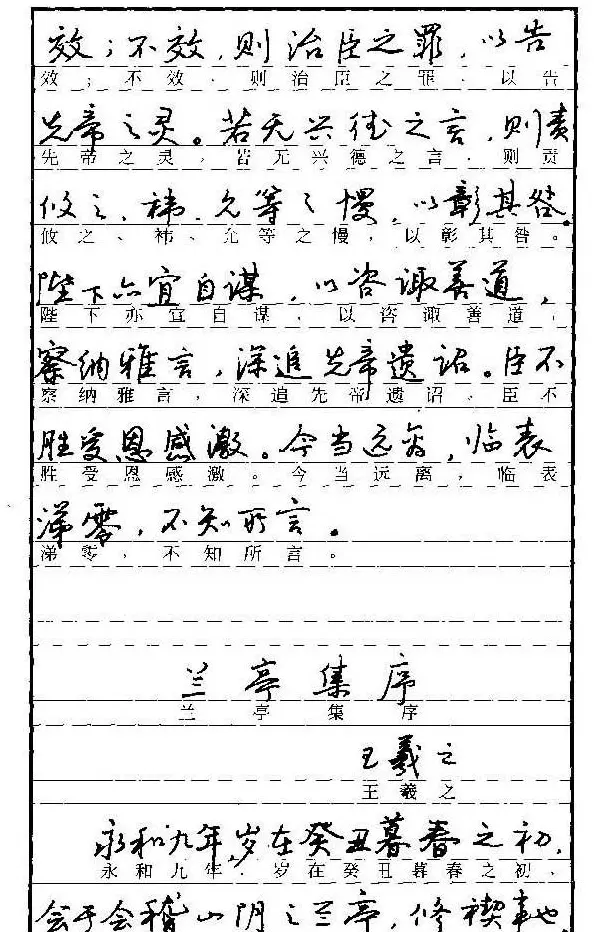 效；不效，则治臣之罪，以告
效；不效，则治臣之罪，以告
先帝之灵。若无兴德之言，则责
先帝之灵，若无兴德之言，则责
攸之、祎、允等之慢，以彰其咎。
攸之、祎、允等之慢，以彰其咎。
陛下亦宜自谋，以咨诹善道，
陛下亦宜自谋，以咨诹善道，
察纳雅言，深追先帝遗诏。臣不
察纳雅言，深追先帝遗诏，臣不
胜受恩感激。今当远离，临表
胜受恩感激。今当远离，临表
涕零，不知所言。
涕零，不知所言。
兰亭集序
兰亭集序
王羲之
王羲之
永和九年，岁在癸丑暮春之初，
永和九年，岁在癸丑暮春之初、
会于会稽山阴之兰亭，修禊事也。